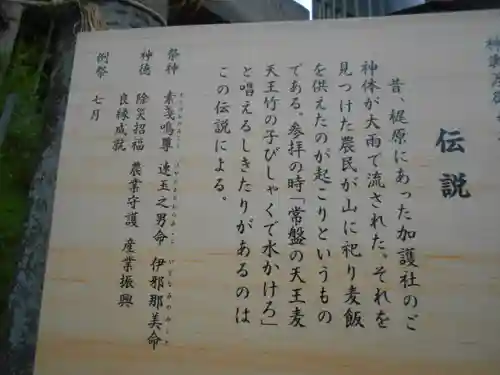 伝説
昔、梶原にあった加護社のご
神体が大雨で流された。それを
見つけた農民が山に祀り麦飯
を供えたのが起こりというもの
である。参拝の時「常盤の天王麦
天王竹の子びしゃくで水かけろ」
と唱えるしきたりがあるのは
この伝説による。
祭神 素戔鳴尊 速玉之男命 伊邪那美命
神徳 除災招福 農業守護 産業振興
良縁成就
例祭 七月